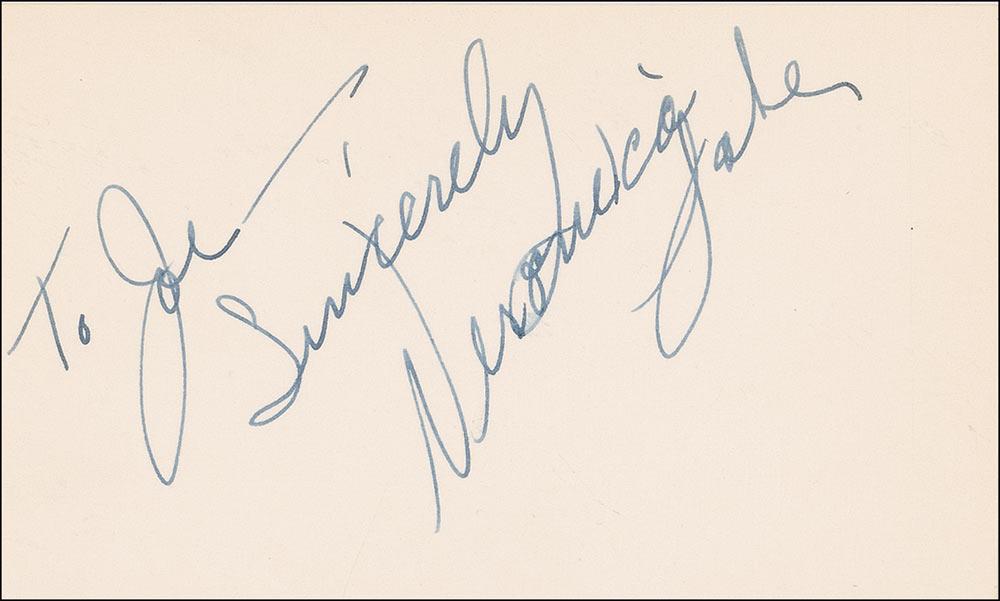 To Joe
Sincerely
Veronica Lake